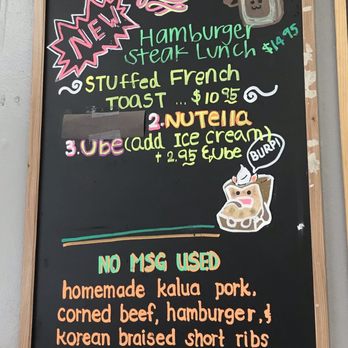 NEW
Hamburger
Steak Lunch $14.95
Stuffed French
Toast ... $10.95
2. Nutella
3. Ube (add Ice cream)
+ 2.95 Ube
BURP!
NO MSG USED
homemade kalua pork,
corned beef, hamburger, &
korean braised short ribs